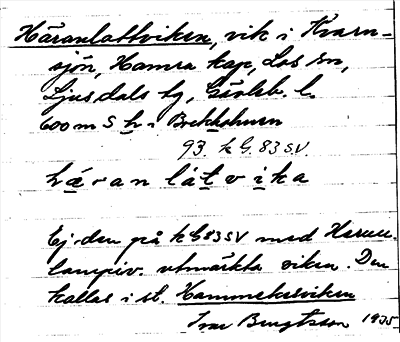 Häranlattviken, vik i Kvarn-
sjön, Hamra kap, Los sn,
Ljusdals tg, Gävleb. l.
600 m S h. i
93. k G. 83 SV.
häranlåtvika
Ej den på k G 83 SV med
utmärkta viken. Den
kallas i st. Hammekesviken
Ivar Bengtsson 1935